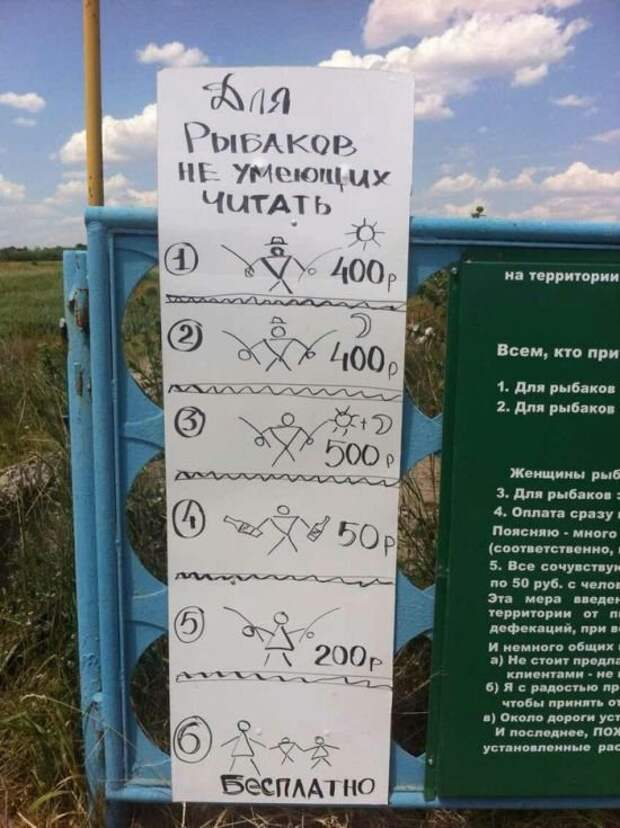 Для
Рыбаков
не умеющих
читать
1 400р
2 400р
3 + 500р
4 50р
5 200р
6
Бесплатно
на территории
Всем, кто при
1. Для рыбаков
2. Для рыбаков
Женщины рыб
3. Для рыбаков з
4. Оплата сразу
Поясняю - много
(соответственно,
5. Все сочувствую
по 50 руб. с челов
Эта мера введен
территории от п
дефекаций, при в
И немного общих
а) Не стоит предла
клиентами - не
б) Я с радостью пр
чтобы принять от
в) Около дороги уст
И последнее, ПОЖ
установленные рас